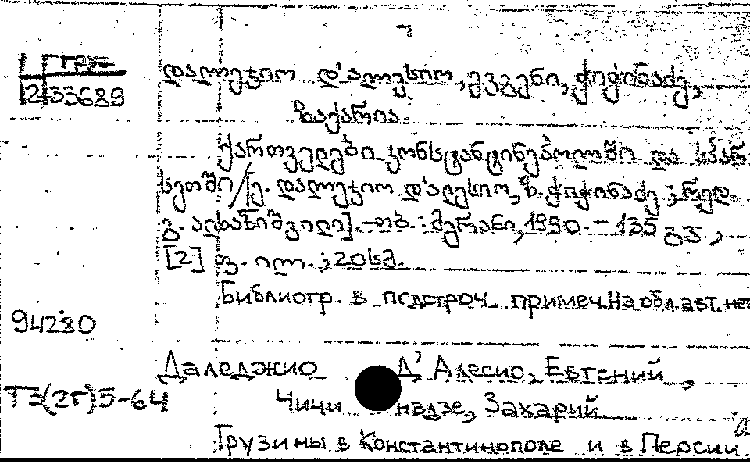 1 груз
2133689
დალეჯიო დ'ალესიო, ევგენი, ჭიჭინაძე,
ზაქარია.
ქართველები კონსტანტინეპოლში და სპარ
სეთში/ე. დალეჯიო დ'ალესიო, ზ. ჭიჭინაძე; რედ.
გ. ალხაზიშვილი]. – თბ.: მერანი, 1990. – 135 გვ.,
[2] ფ. ილ.; 20სმ.
Библиогр. в подстроч. примеч. На обл. авт.
94280
Даледжио Д' Алесио, Евгений,
Т3(2Г)5-64
Чичинадзе, Захарий
Грузины в Константинополе и в Персии